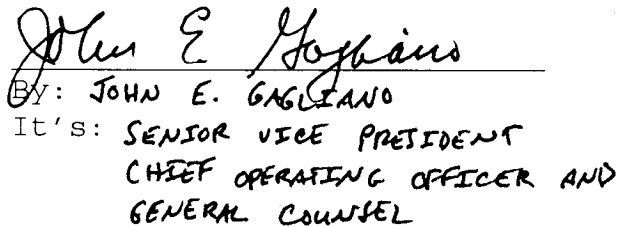 John E Gagliano
By: JOHN E. GAGLIANO
It's: SENIOR VICE PRESIDENT
CHIEF OPERATING OFFICER AND
GENERAL COUNSEL